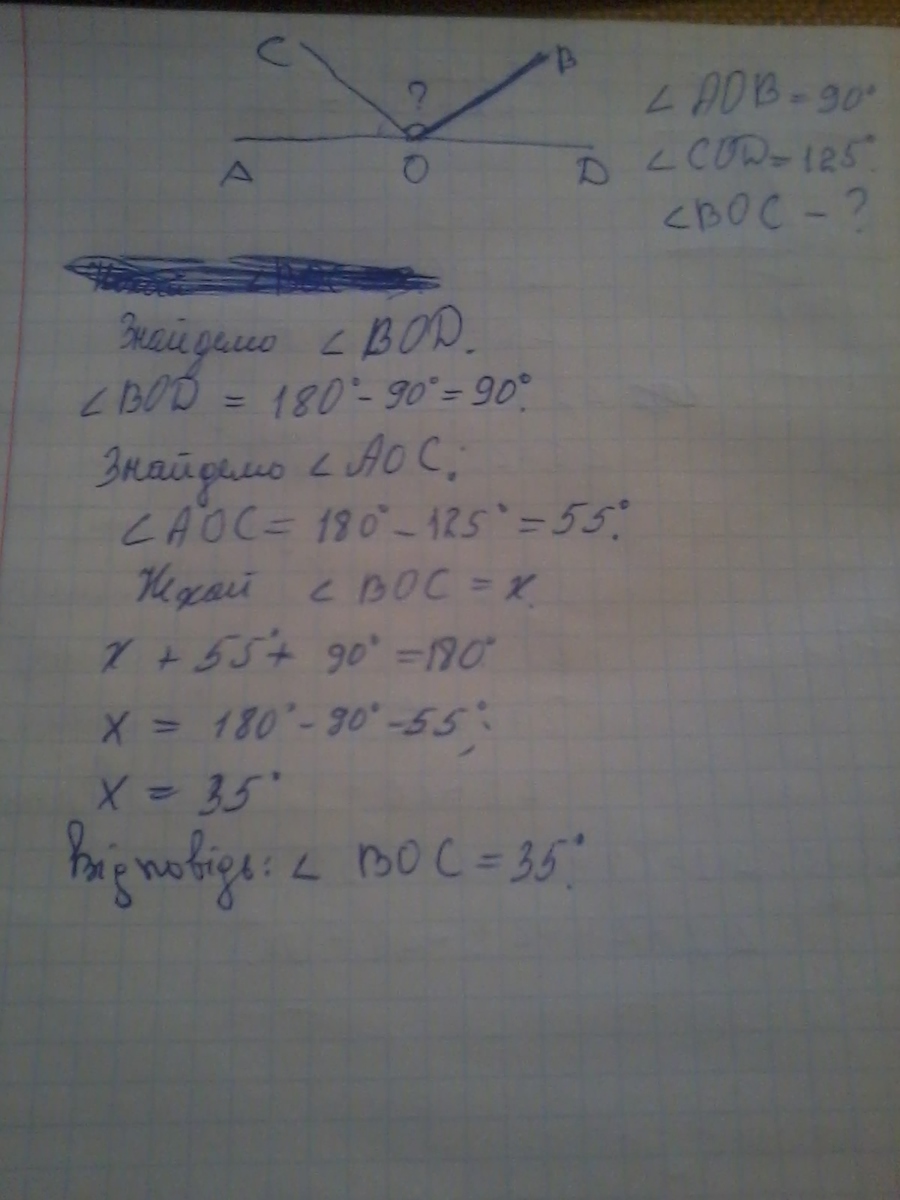 C B
?
A O D
∠ AOB = 90°
∠ COD = 125°.
∠BOC - ?
∠ BOC
Знайдемо ∠ BOD.
∠ BOD = 180° - 90° = 90°.
Знайдемо ∠ AOC.
∠ AOC = 180° - 125° = 55°.
Нехай ∠ BOC = x.
x + 55° + 90° = 180°
x = 180° - 90° - 55°;
x = 35°
Відповідь: ∠ BOC = 35°.